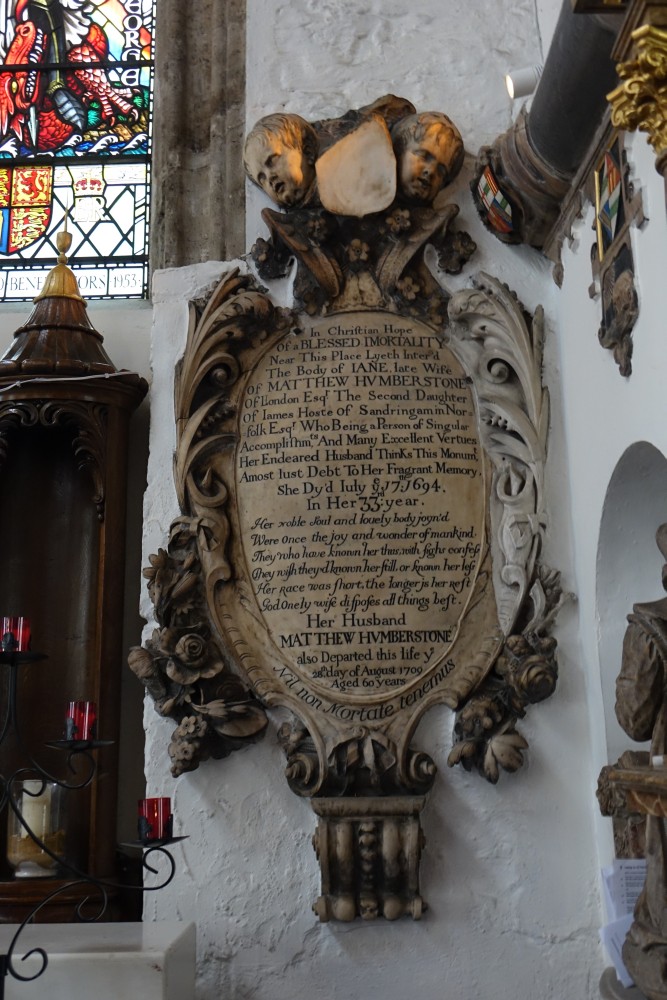 GEORGE
BENEFACTORS 1953
In Christian Hope
of a BLESSED IMORTALITY
Near This Place Lyeth Inter'd
The Body of IANE, late Wife
Of MATTHEW HVMBERSTONE
Of London Esqr. The Second Daughter
Of Iames Hoste of Sandringam in Nor=
folk Esqr. Who Being a Person of Singular
Accomplishmts. And Many Excellent Vertues
Her Endeared Husband Thinks This Monumt.
Amost Iust Debt To Her Fragrant Memory.
She Dy'd Iuly ye 17th: 1694.
In Her 33d: year.
Her noble soul and lovely body joyn'd
Were once the joy and wonder of mankind
They who have known her thus, with sighs confess
They wish they'd known her still, or known her less
Her race was short, the longer is her rest
God onely wise disposes all things best.
Her Husband
MATTHEW HVMBERSTONE
also Departed this life ye
28th day of August 1709
Aged 60 years
Nil non Mortale tenemus